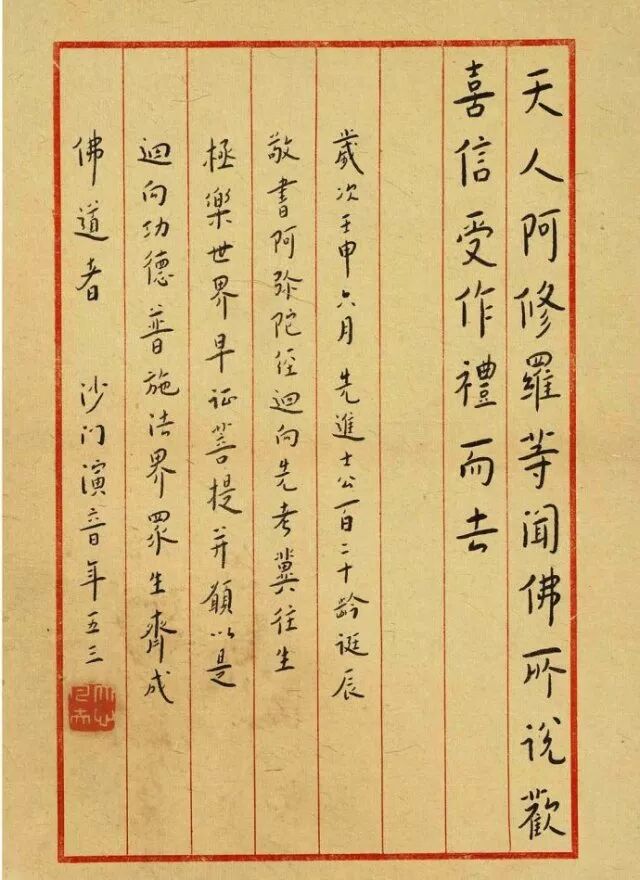 天人阿修羅等聞佛所說歡
喜信受作禮而去
歲次壬申六月先進士公一百二十齡誕辰
敬書阿弥陀経迴向先考冀往生
極樂世界早证菩提并願以是
迴向功德普施法界眾生齊成
佛道者 沙门演音年五三